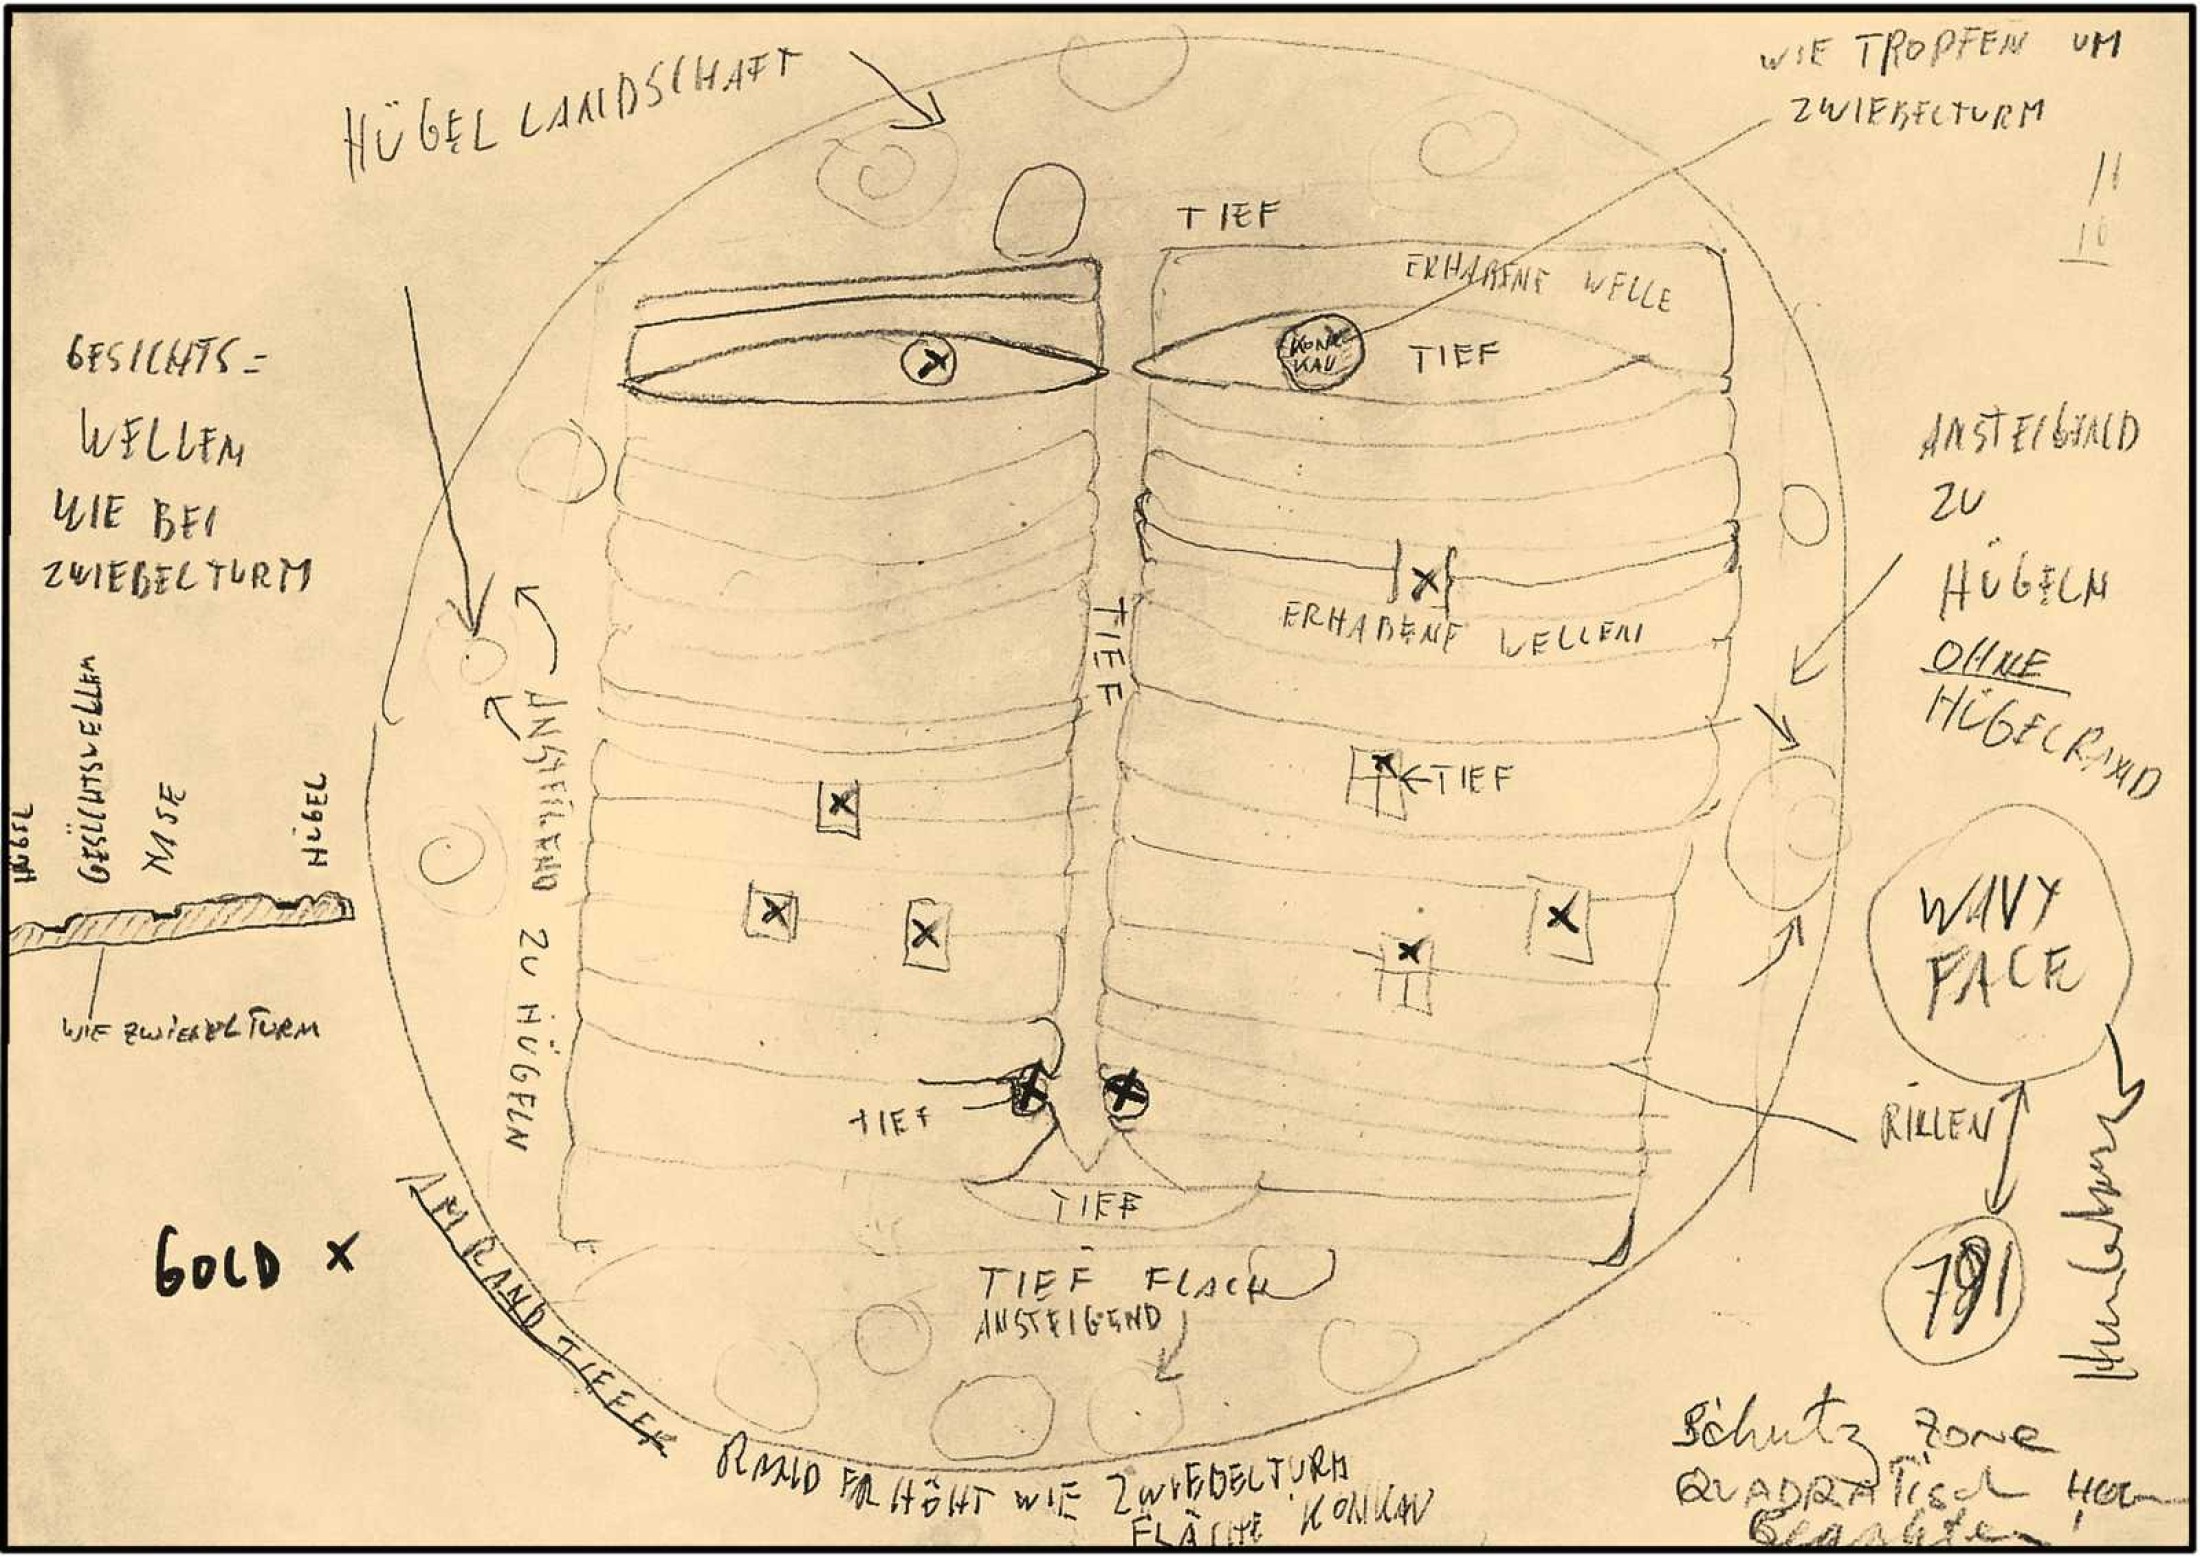 HÜGEL LANDSCHAFT
WIE TROPFEN UM
ZWIEBELTURM
TIEF
ERHABENE WELLE
KON
KAV
TIEF
GESICHTS=
WELLEN
WIE BEI
ZWIEBELTURM
ANSTEIGEND
ZU
HÜGELN
OHNE
HÜGELRAND
ERHABENE WELLEN
TIEF
ANSTEIGEND ZU HÜGELN
←TIEF
HÜGEL
GESICHTSWELLEN
NASE
HÜGEL
WIE ZWIEBELTURM
WAVY
FACE
RILLEN
TIEF
TIEF
791
Hundertwasser
GOLD X
AM RAND TIEFER
TIEF FLACH
ANSTEIGEND
RAND ERHÖHT WIE ZWIEBELTURM
FLÄCHE KONKAV
Schutz Zone
QUADRATisch